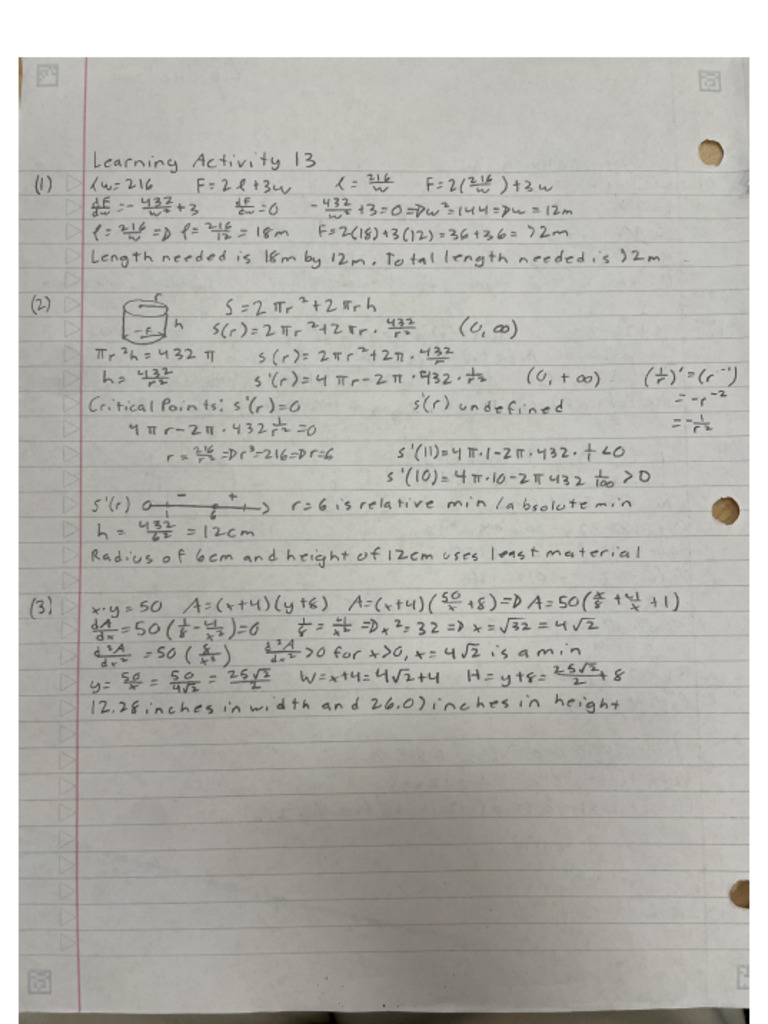 Learning Activity 13
(1) lw=216 F=2l+3w l=216/w F=2(216/w)+3w
dF/dw=-432/w²+3 dF/dw=0 -432/w²+3=0=Dw²=144=Dw=12m
l=216/w=D l=216/12=18m F=2(18)+3(12)=36+36=72m
Length needed is 18m by 12m. Total length needed is 72m
(2) r h S=2πr²+2πrh
-r- S(r)=2πr²+2πr·432/r² (0,∞)
πr²h=432π S(r)=2πr²+2π·432/r
h=432/r² S'(r)=4πr-2π·432·1/r² (0,+∞) (1/r)'=(r⁻¹)
Critical Points: S'(r)=0 S'(r) undefined =-r⁻²
4πr-2π·432 1/r²=0 =-1/r²
r=216/r²=Dr³=216=Dr=6 S'(1)=4π·1-2π·432·1/1<0
S'(10)=4π·10-2π432 1/100>0
S'(r) 0 - + 1 6 r=6 is relative min/absolute min
h=432/6²=12cm
Radius of 6cm and height of 12cm uses least material
(3) x·y=50 A=(x+4)(y+8) A=(x+4)(50/x+8)=D A=50(x/8+4/x+1)
dA/dx=50(1/8-4/x²)=0 1/8=4/x²=Dx²=32=D x=√32=4√2
d²A/dx²=50(8/x³) d²A/dx²>0 for x>0, x=4√2 is a min
y=50/x=50/4√2=25√2/2 W=x+4=4√2+4 H=y+8=25√2/2+8
12.28 inches in width and 26.07 inches in height